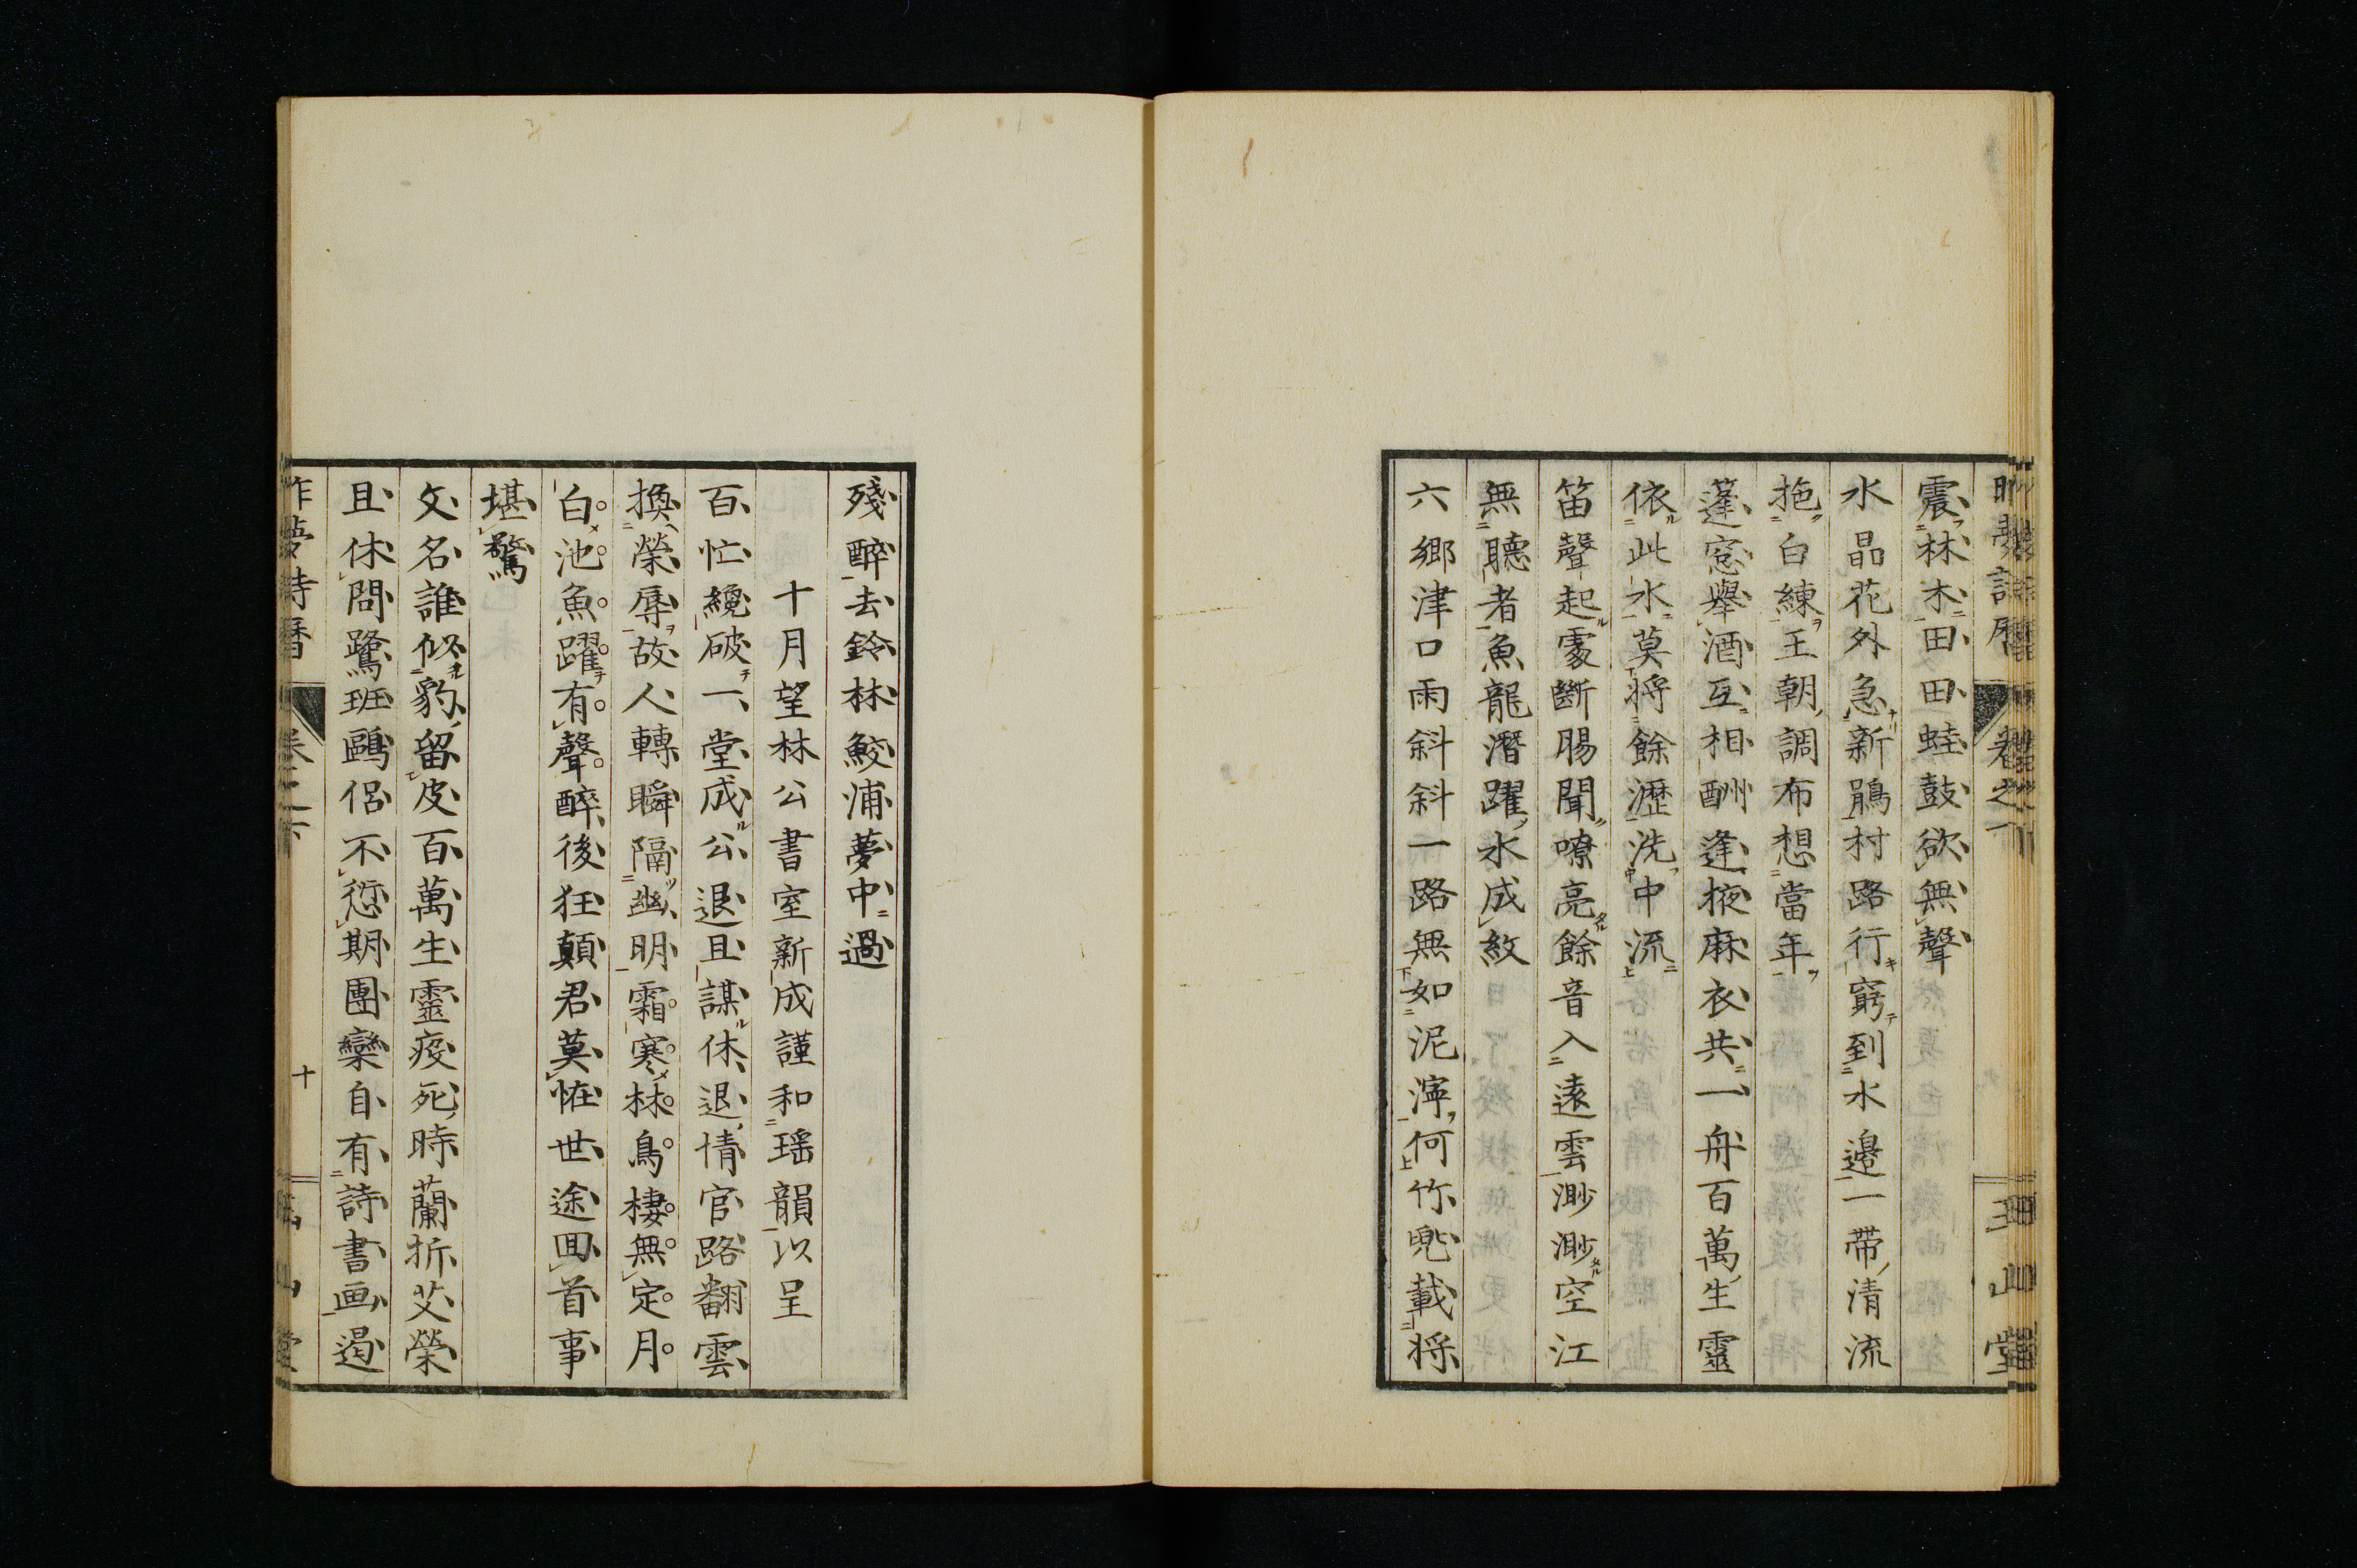 震林木田田蛙鼓欲無聲
水晶花外急新鵑村路行窮到水邊一帶清流
拖白練王朝調布想當年
蓬窓擧酒互相酬逢掖麻衣共一舟百萬生靈
依此水莫將餘瀝洗中流
笛聲起處斷腸聞嘹亮餘音入遠雲渺渺空江
無聽者魚龍潛躍水成紋
六鄉津口雨斜斜一路無如泥濘何竹兜載將
殘醉去鈴林鮫浦夢中過
十月望林公書室新成謹和瑶韻以呈
百忙纔破一堂成公退且謀休退情官路翻雲
換榮辱故人轉瞬隔幽明霜寒林鳥棲無定月
白池魚躍有聲醉後狂顛君莫恠世途回首事
堪驚
文名誰似豹留皮百萬生靈疫死時蘭折艾榮
且休問鷺班鷗侶不愆期團欒自有詩書画遏
夢詩暦 卷之下 十 山堂